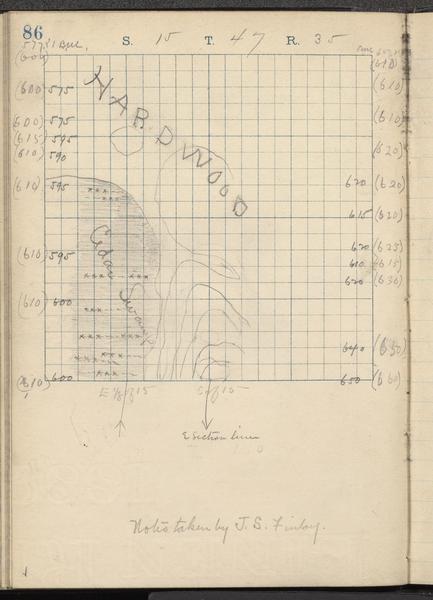 86
S. 15 T. 47 R. 35
(600) 575
(600) 575
(615) 595
(610) 590
(610) 595
(610) 595
(610) 600
(610) 600
HARDWOOD
Cedar Swamp
(610)
(610)
(610)
(620)
620 (620)
615 (620)
620 (625)
610 (615)
620 (630)
640 (650)
650 (660)
E section line
Notes taken by J. S. Finlay.